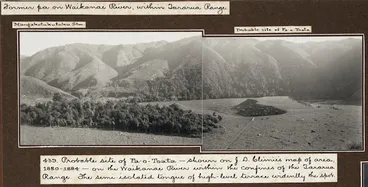 Former pa on Waikanae River, within Tararua Range
Mangakotukutuku Stm
Probable site of Pa-o-Toata
433. Probable site of Pa-o-Toata — shown on J. D. Climie's map of area,
1880-1884 — on the Waikanae River within the confines of the Tararua
Range. The semi-isolated tongue of high-level terrace evidently the spot.